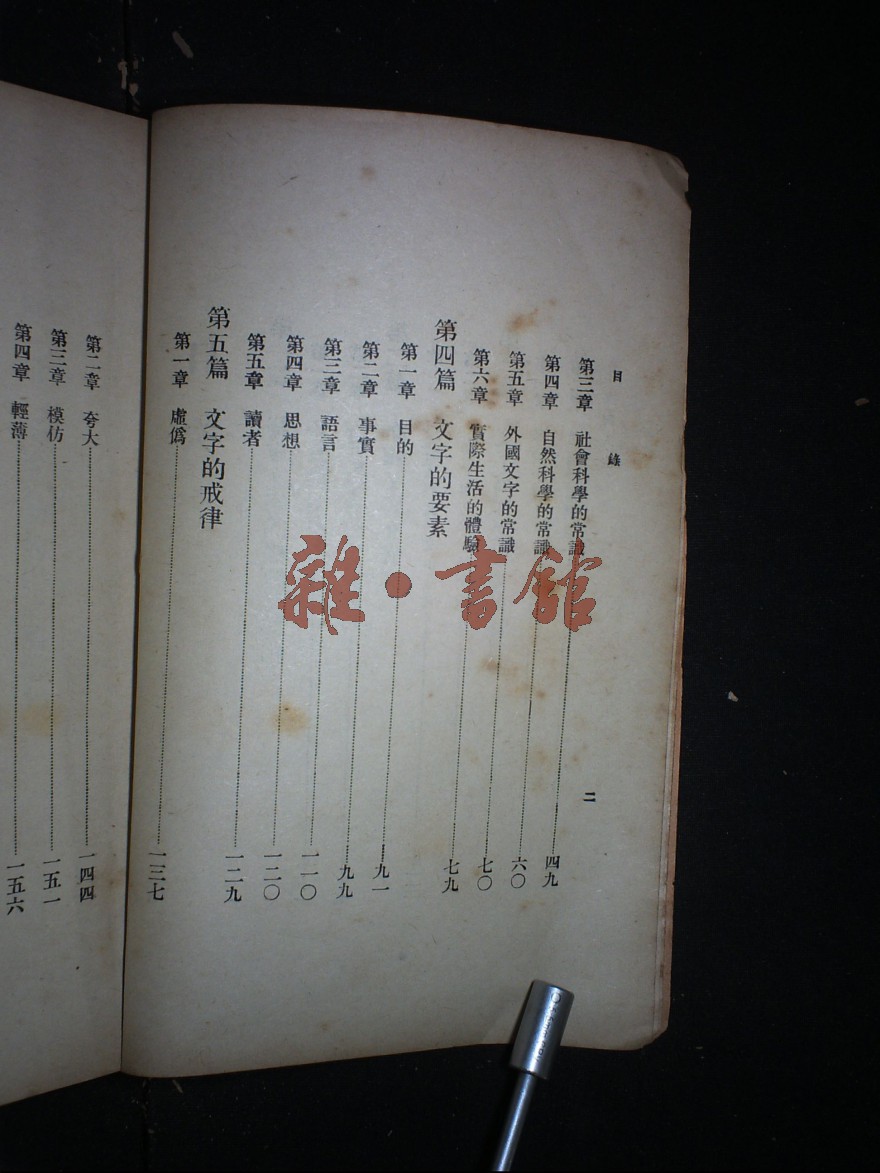 目錄
第三章 社會科學的常識 四九
第四章 自然科學的常識 六〇
第五章 外國文字的常識 七〇
第六章 實際生活的體驗 七九
第四篇 文字的要素
第一章 目的 九一
第二章 事實 九九
第三章 語言 一一〇
第四章 思想 一二〇
第五章 讀者 一二九
第五篇 文字的戒律
第一章 虛偽 一三七
二
第二章 夸大 一四四
第三章 模仿 一五一
第四章 輕薄 一五六
雜·書館